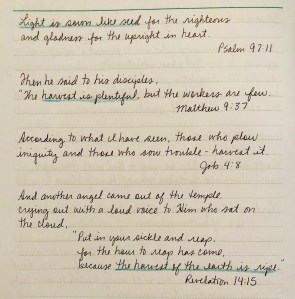 Light is sown like seed for the righteous
and gladness for the upright in heart.
Psalm 97:11
Then he said to his disciples,
"The harvest is plentiful, but the workers are few.
Matthew 9:37
According to what I have seen, those who plow
iniquity and those who sow trouble - harvest it.
Job 4:8
And another angel came out of the temple
crying out with a loud voice to Him who sat on
the cloud,
"Put in your sickle and reap,
for the hour to reap has come,
because the harvest of the earth is ripe."
Revelation 14:15